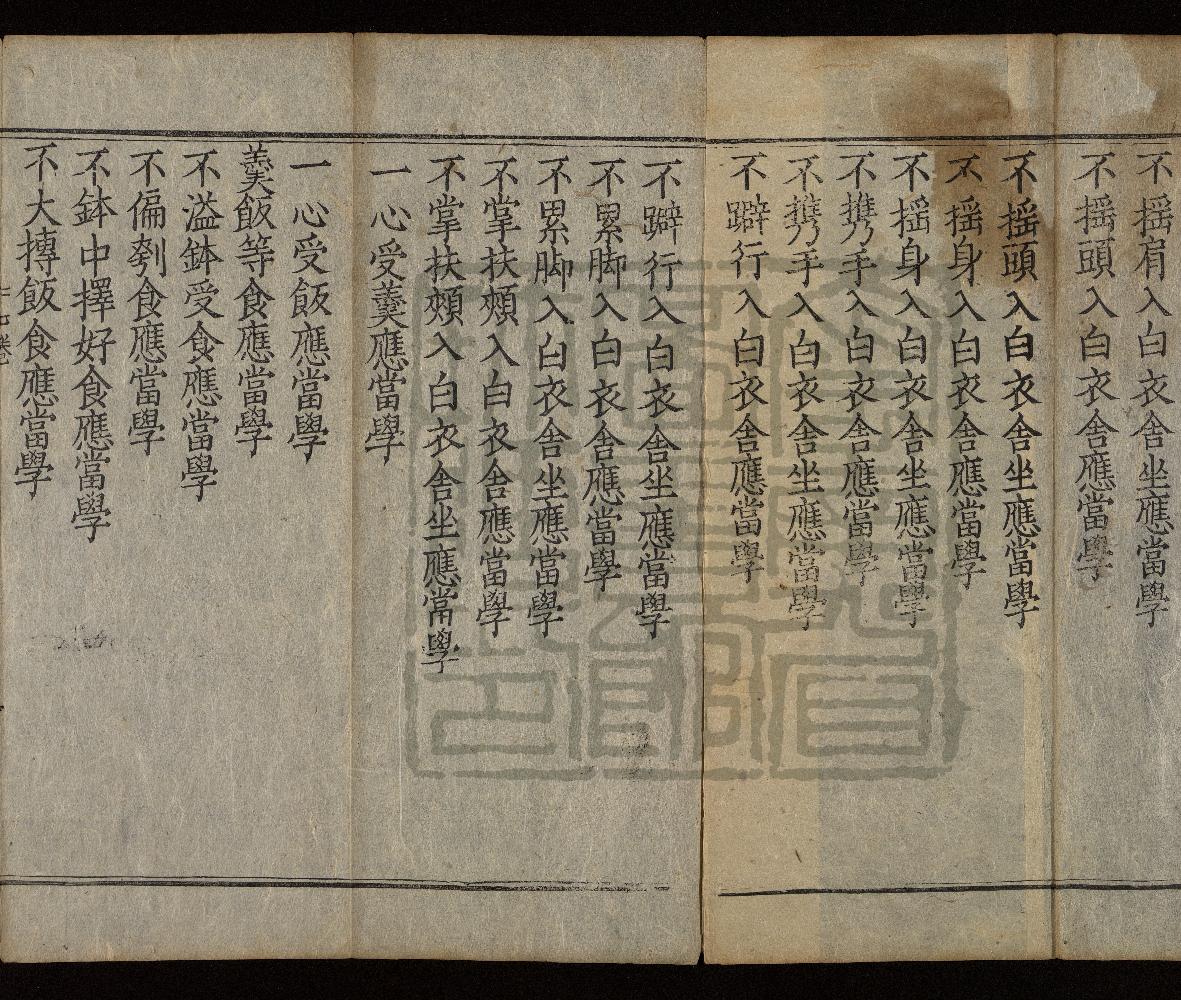 不摇肩入白衣舍坐應當學
不摇頭入白衣舍應當學
不摇頭入白衣舍坐應當學
不摇身入白衣舍應當學
不摇身入白衣舍坐應當學
不携手入白衣舍應當學
不携手入白衣舍坐應當學
不躃行入白衣舍應當學
不躃行入白衣舍坐應當學
不累脚入白衣舍應當學
不累脚入白衣舍坐應當學
不掌扶頰入白衣舍應當學
不掌扶頰入白衣舍坐應當學
一心受羹應當學
一心受飯應當學
羹飯等食應當學
不溢鉢受食應當學
不偏刳食應當學
不鉢中擇好食應當學
不大摶飯食應當學